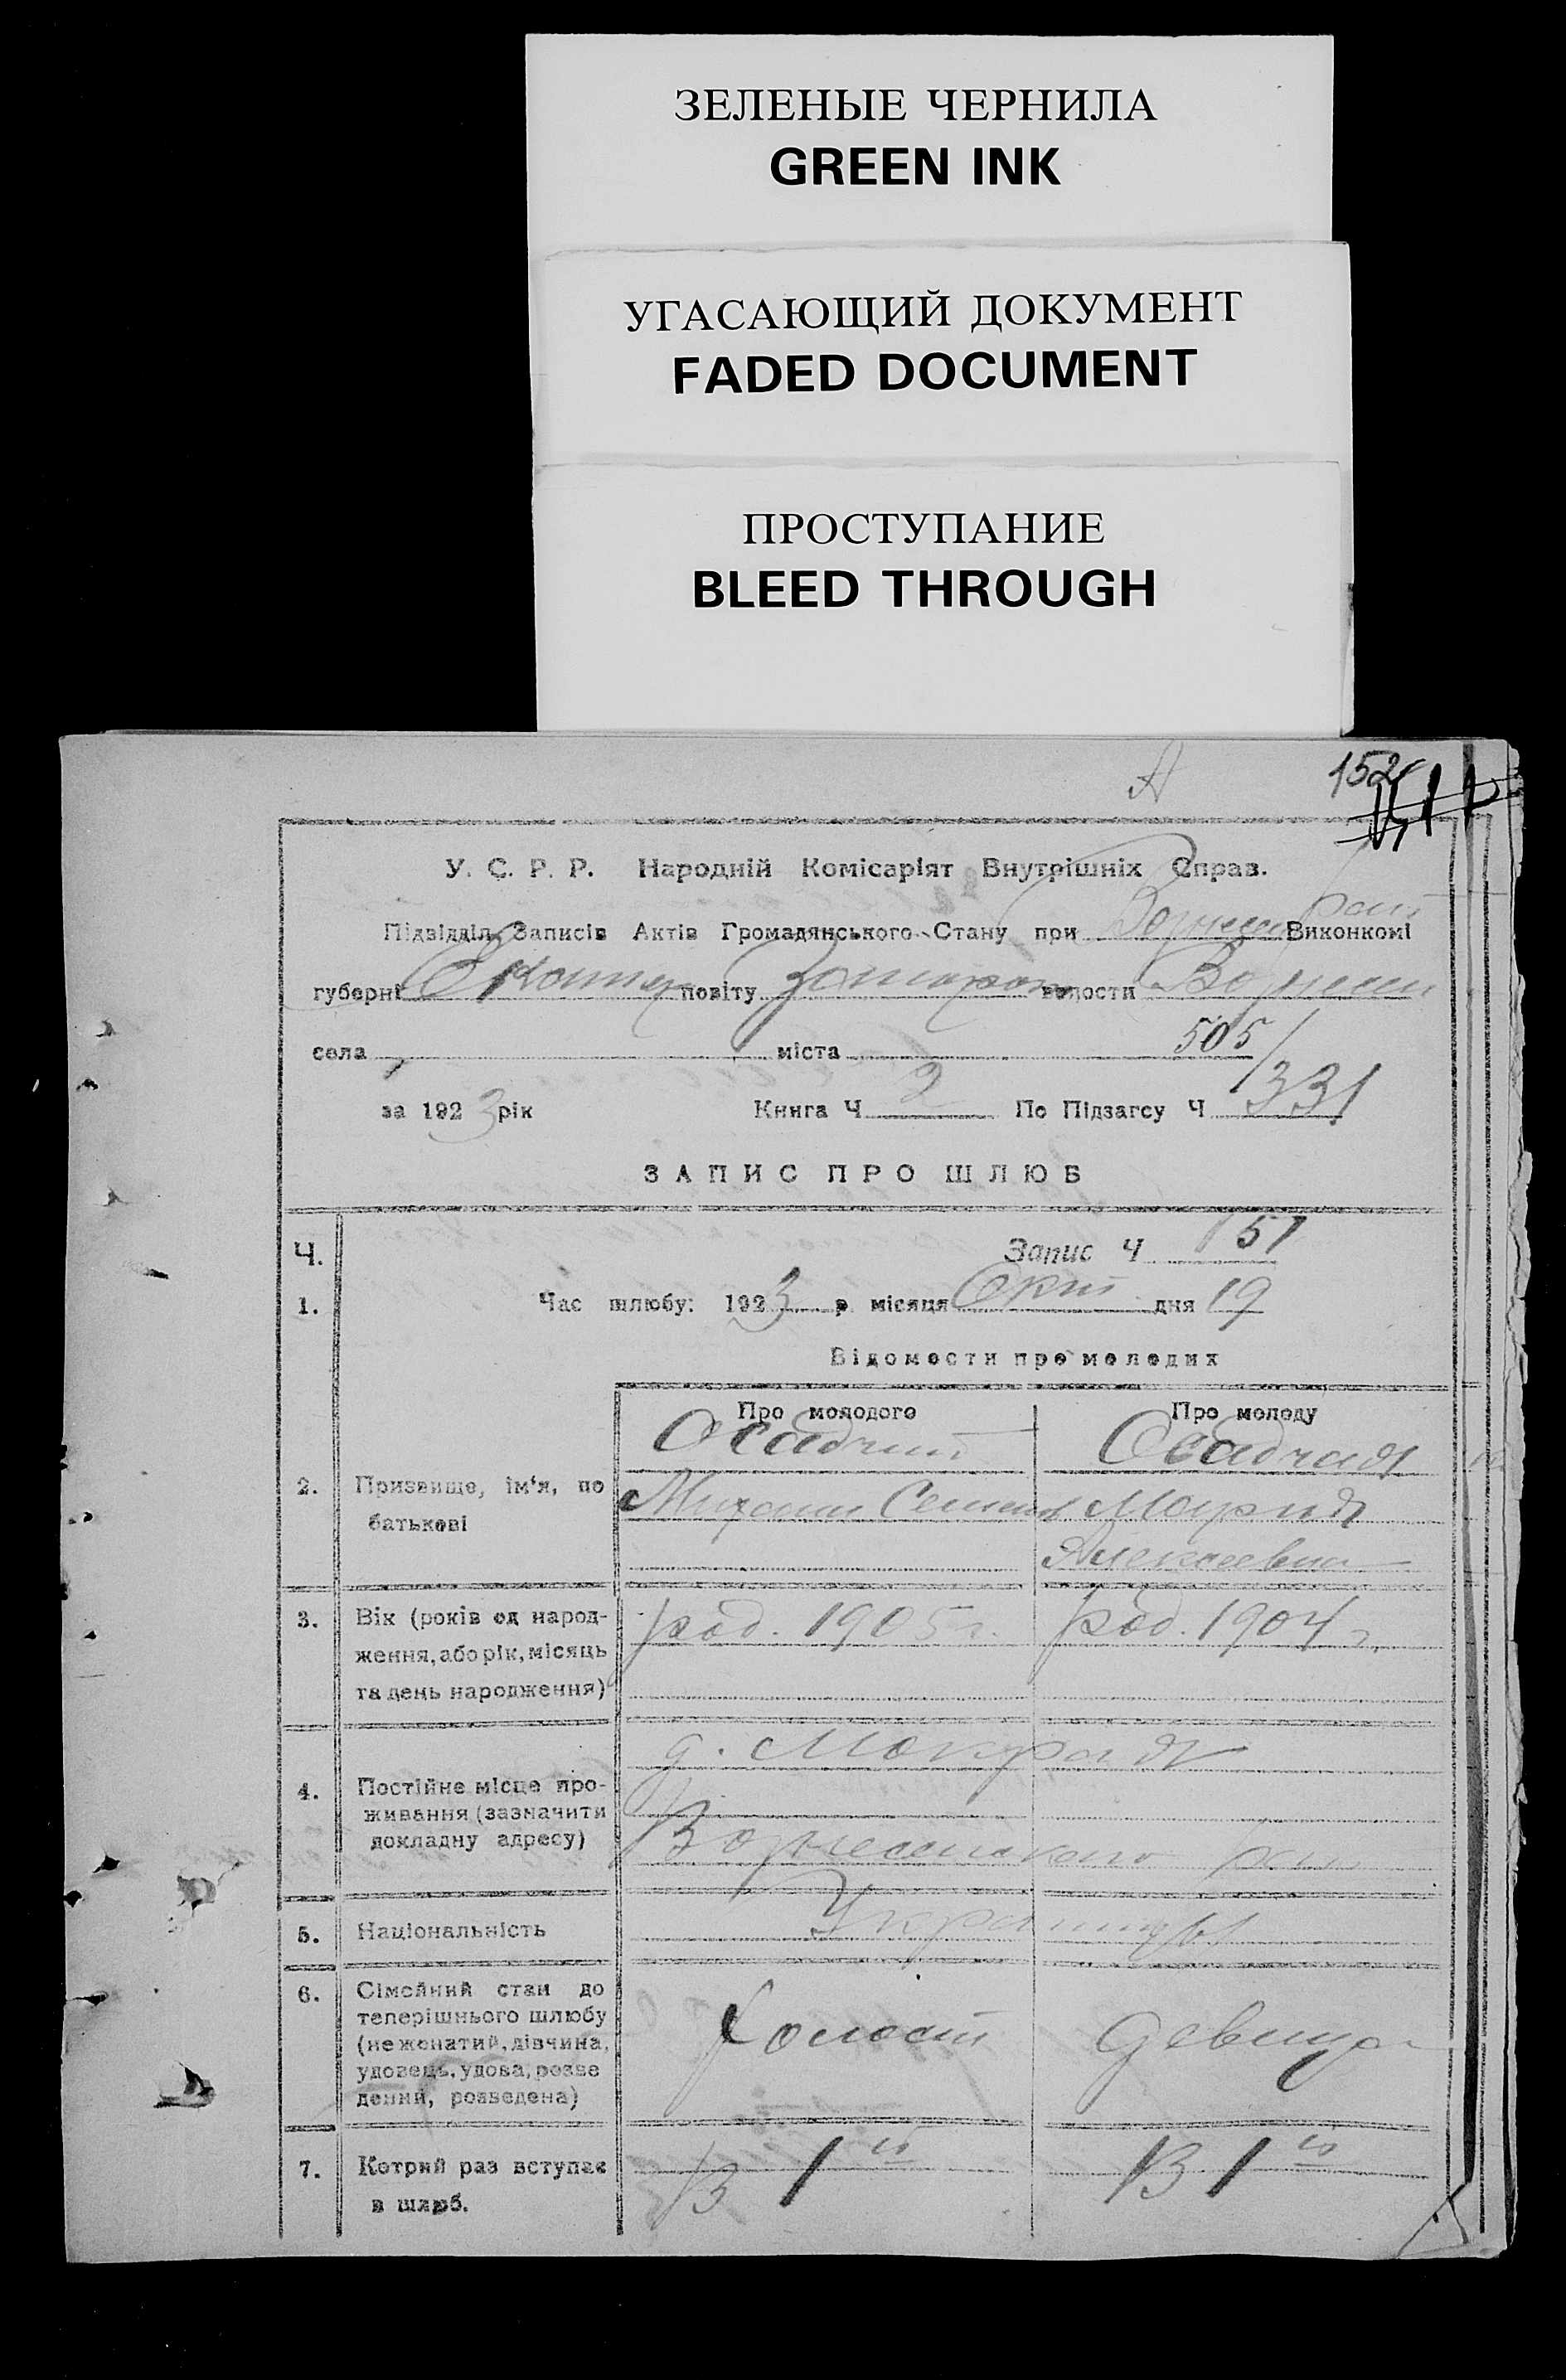 ЗЕЛЕНЫЕ ЧЕРНИЛА
GREEN INK
УГАСАЮЩИЙ ДОКУМЕНТ
FADED DOCUMENT
ПРОСТУПАНИЕ
BLEED THROUGH
А 152
У. С. Р. Р. Народній Комісаріят Внутрішніх Справ.
Підвідділ Записів Актів Громадянського Стану при Вознесен Виконкомі
губерні Екатер повіту Запорож волости Вознесен
села міста 505/
за 1923 рік Книга Ч 2 По Підзагсу Ч 331
ЗАПИС ПРО ШЛЮБ
Ч. Запис Ч 151
1. Час шлюбу: 1923 р місяця Окт дня 19
Відомости про молодих
Про молодого Про молоду
Осадчий Осадчая
2. Призвище, ім'я, по батькові
Михаил Семенов Мария
Алексеевна
3. Вік (років од народ-
ження, або рік, місяць
та день народження)
род. 1905 г. род. 1904 г.
4. Постійне місце про-
живання (зазначити
докладну адресу)
д. Мокрая
Вознесенского
5. Національність Украинцы
6. Сімейний стан до
теперішнього шлюбу
(не жонатий, дівчина,
удовець, удова, розве
дений, розведена)
холост девица
7. Котрий раз вступає
в шлюб.
В 1й В 1й